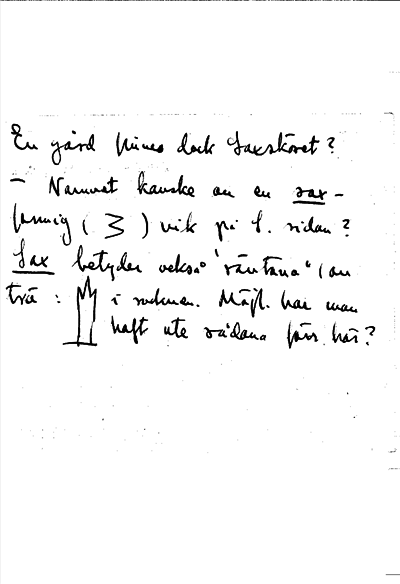 En gård finnes dock Saxskäret?
— Namnet kanske av en sax-
formig ( ) vik på S. sidan?
Sax betyder också "räntana" (av
trä : i socknen. Möjl. har man
haft ute sådana förr här?